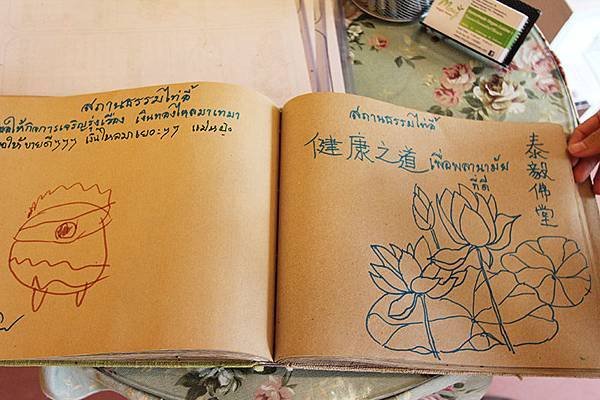 สถานธรรมไท่อี้
ให้กิจการเจริญรุ่งเรือง เงินทองไหลมาเทมา
ให้ขายดีๆๆๆ เงินไหลมาเยอะๆๆ
สถานธรรมไท่อี้
健康之道 เพื่อพลานามัย
ที่ดี
泰毅佛堂